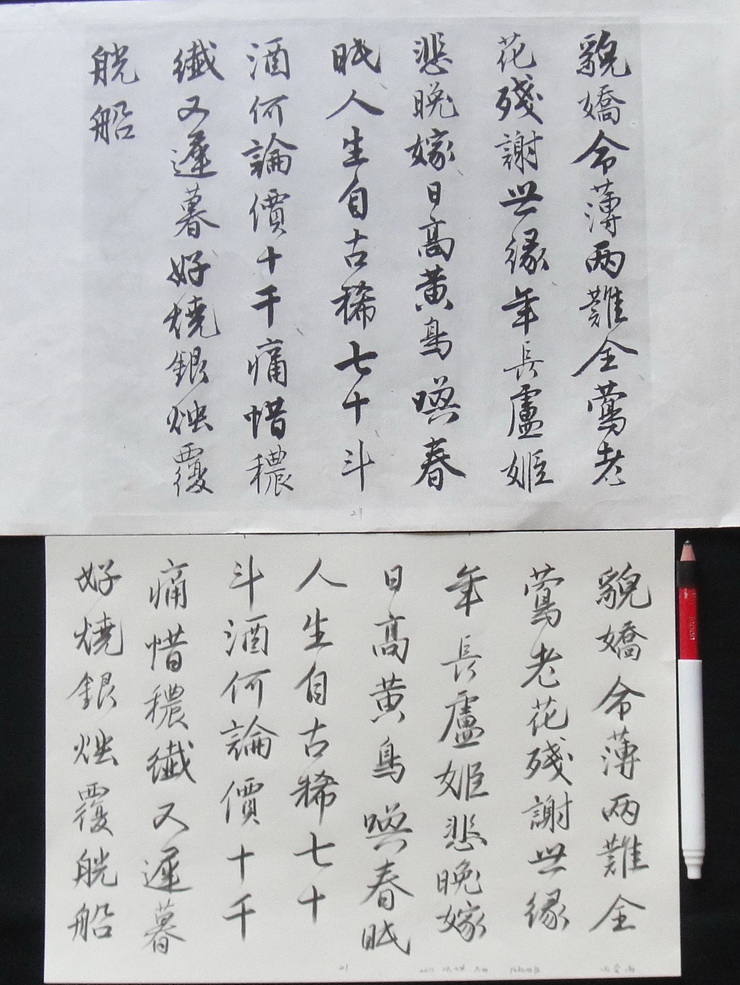 貌嬌命薄兩難全鶯老
花殘謝世緣年長盧姬
悲晚嫁日高黃鳥喚春
眠人生自古稀七十斗
酒何論價十千痛惜穠
纖又遲暮好燒銀燭覆
觥船
21
貌嬌命薄兩難全
鶯老花殘謝世緣
年長盧姬悲晚嫁
日高黃鳥喚春眠
人生自古稀七十
斗酒何論價十千
痛惜穠纖又遲暮
好燒銀燭覆觥船
21